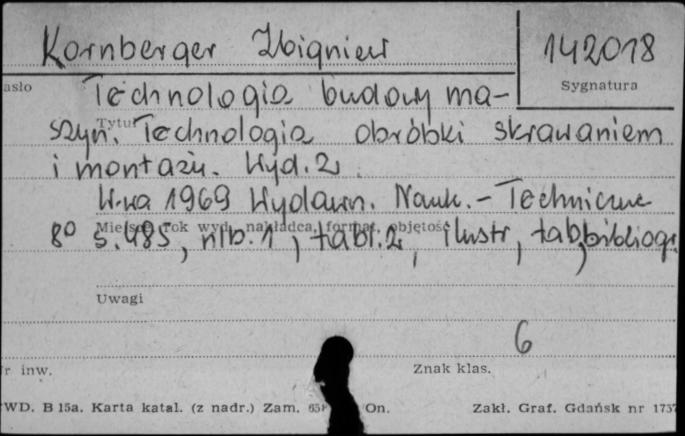 Kornberger Zbigniew 142018
asło Sygnatura
Technologia budowy ma-
Tytuł
szyn. Technologia obróbki skrawaniem
i montażu. Wyd. 2
W-wa 1969 Wydawn. Nauk. - Techniczne
Miejsce, rok wyd., nakładca, format, objętość
8° s. 485, nlb. 1, tabl. 2, ilustr, tab, bibliogr.
Uwagi
6
r inw. Znak klas.
WD. B 15a. Karta katal. (z nadr.) Zam. On. Zakł. Graf. Gdańsk nr 1737